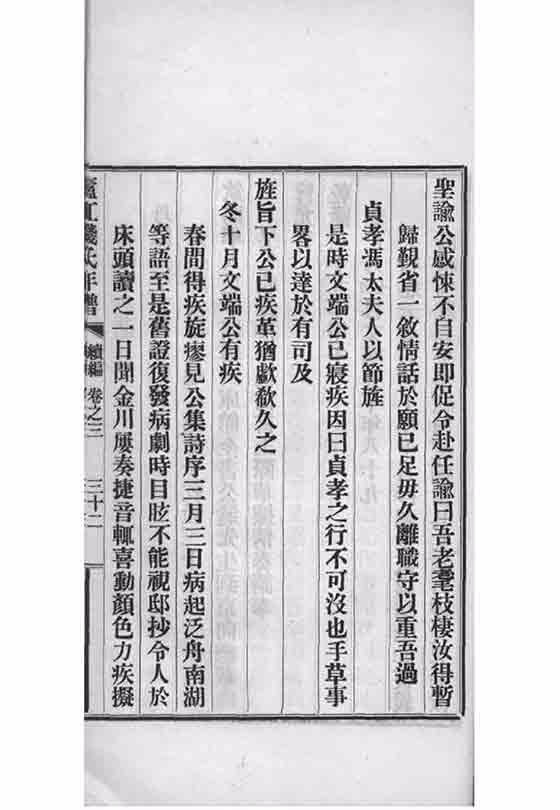 聖諭公感悚不自安即促令赴任諭曰吾老耄枝棲汝得暫
歸覲省一敘情話於願已足毋久離職守以重吾過
貞孝馮太夫人以節旌
是時文端公已寢疾因曰貞孝之行不可沒也手草事
畧以達於有司及
旌旨下公已疾革猶歔欷久之
冬十月文端公有疾
春間得疾旋瘳見公集詩序三月三日病起泛舟南湖
等語至是舊證復發病劇時目眩不能視邸抄令人於
床頭讀之一日聞金川屢奏捷音輒喜動顏色力疾擬
廬江錢氏年譜 續編 卷之三 三十二